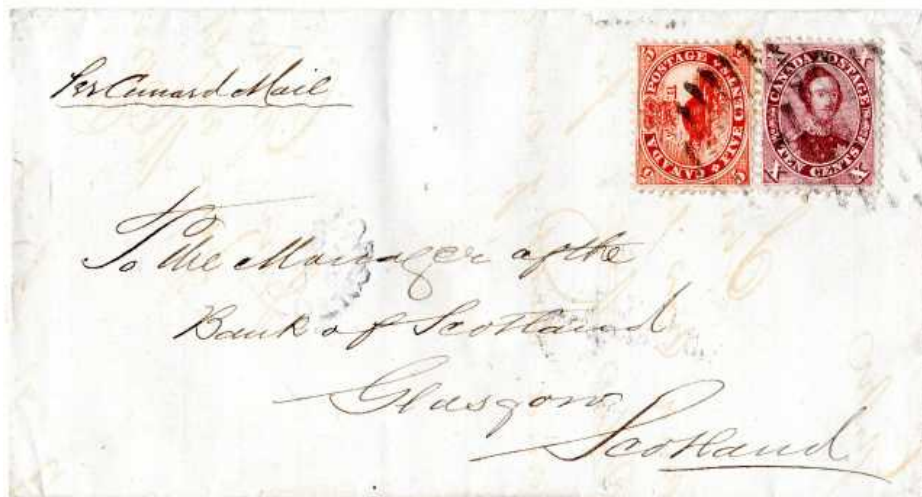 Per Cunard Mail
5 5
CANADA POSTAGE
FIVE CENTS
X X
CANADA POSTAGE
TEN CENTS
X X
To the Manager of the
Bank of Scotland
Glasgow
Scotland